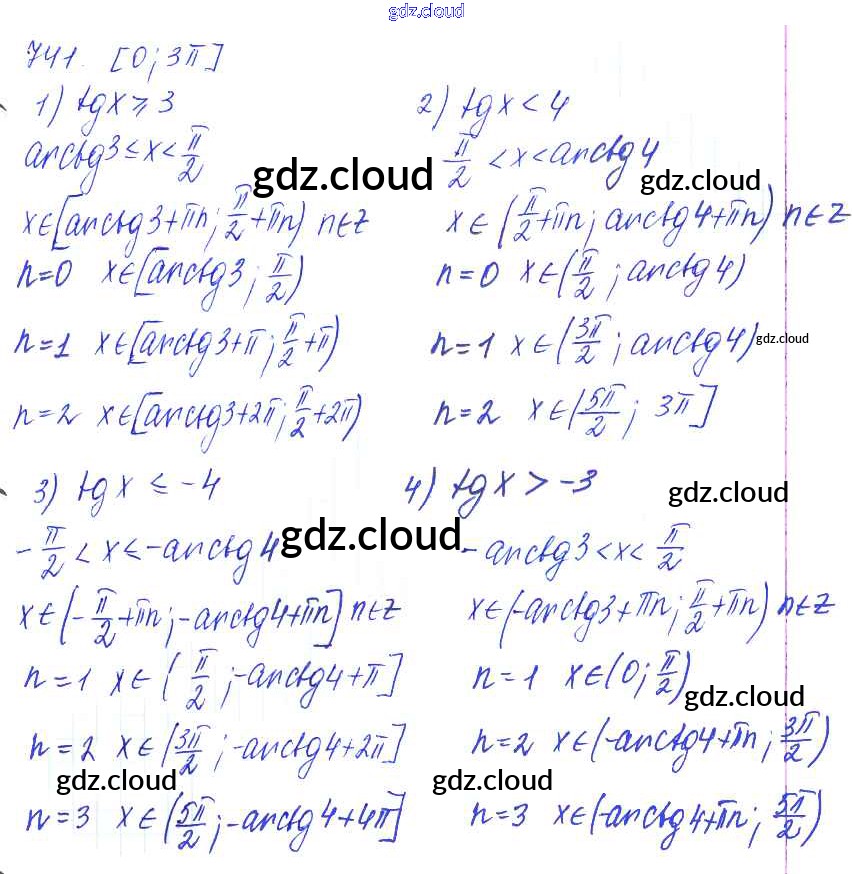 gdz.cloud
741. [0; 3π]
1) tgx ≥ 3
arctg3 ≤ x < π/2
gdz.cloud
x∈[arctg3+πn; π/2+πn) n∈Z
n=0 x∈[arctg3; π/2)
n=1 x∈[arctg3+π; π/2+π)
n=2 x∈[arctg3+2π; π/2+2π)
2) tgx < 4
π/2 < x < arctg4
gdz.cloud
x∈(π/2+πn; arctg4+πn) n∈Z
n=0 x∈(π/2; arctg4)
n=1 x∈(3π/2; arctg4)
gdz.cloud
n=2 x∈(5π/2; 3π]
3) tgx ≤ -4
-π/2 < x ≤ -arctg4
gdz.cloud
x∈(-π/2+πn; -arctg4+πn] n∈Z
n=1 x∈(π/2; -arctg4+π]
n=2 x∈(3π/2; -arctg4+2π]
gdz.cloud
n=3 x∈(5π/2; -arctg4+4π]
4) tgx > -3
gdz.cloud
-arctg3 < x < π/2
x∈(-arctg3+πn; π/2+πn) n∈Z
n=1 x∈(0; π/2)
gdz.cloud
n=2 x∈(-arctg4+πn; 3π/2)
gdz.cloud
n=3 x∈(-arctg4+πn; 5π/2)